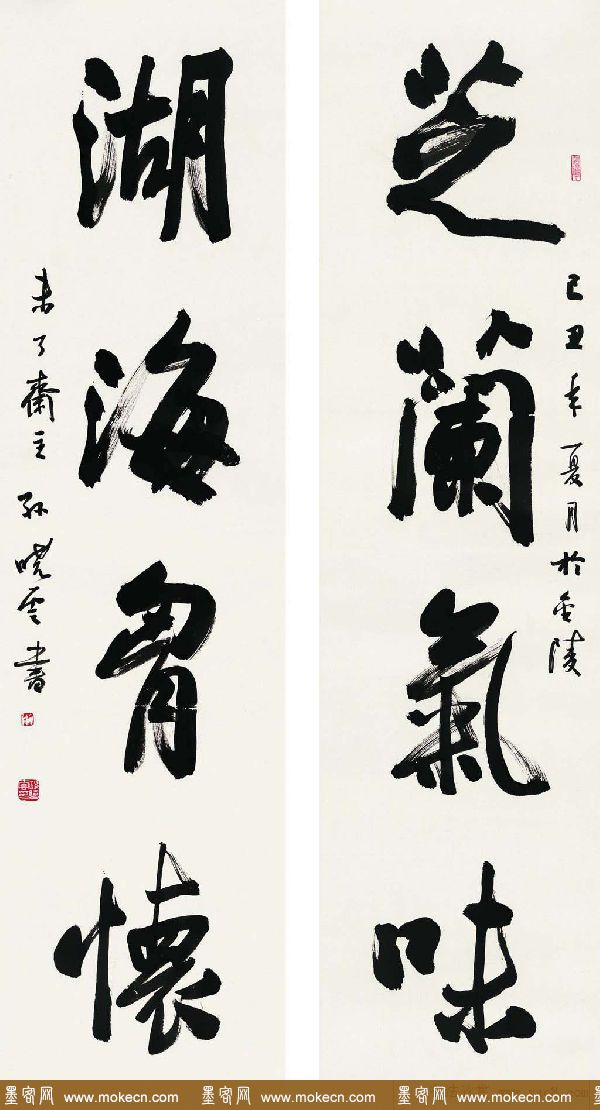 芝蘭氣味
己丑年夏月於金陵
湖海胷懷
未了齋主孙曉雲書
墨客网 www.mokecn.com 墨客网 www.mokecn.com 墨客网 www.mokecn.com